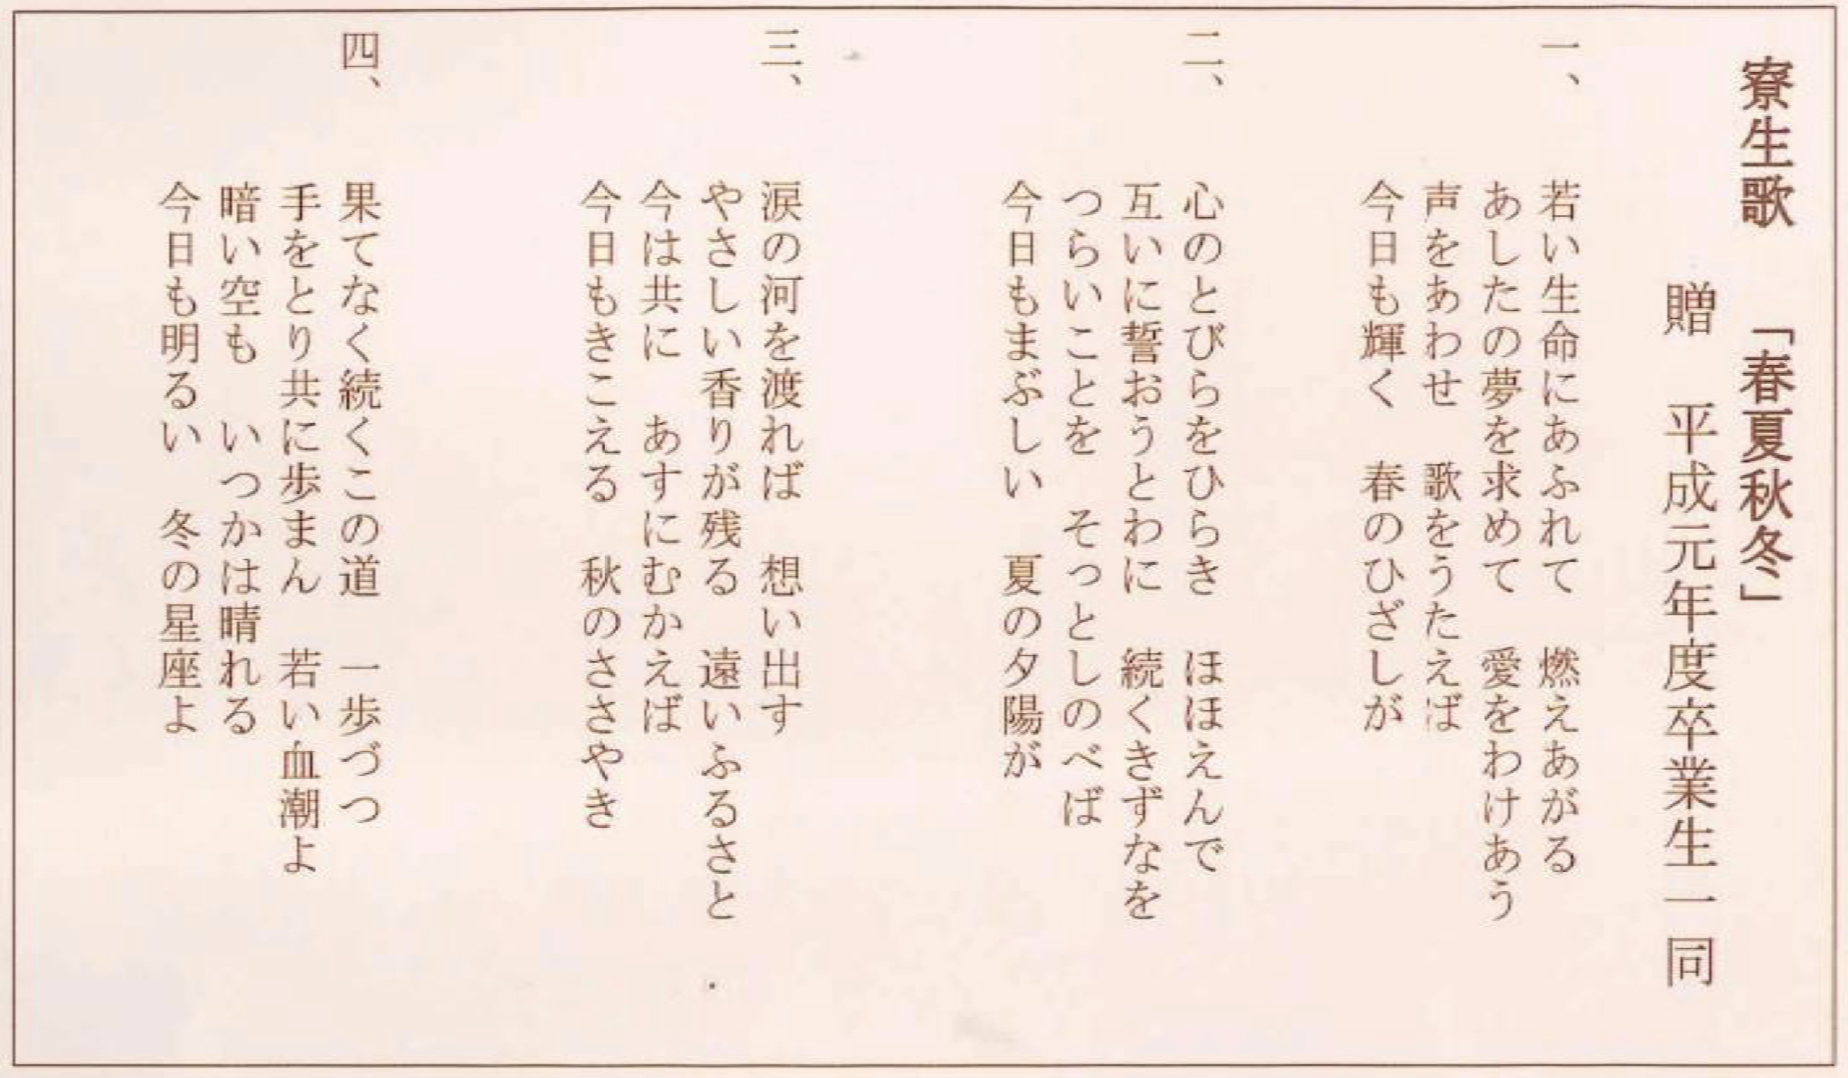 寮生歌　「春夏秋冬」
贈　平成元年度卒業生一同
一、　若い生命にあふれて　燃えあがる
あしたの夢を求めて　愛をわけあう
声をあわせ　歌をうたえば
今日も輝く　春のひざしが
二、　心のとびらをひらき　ほほえんで
互いに誓おうとわに　続くきずなを
つらいことを　そっとしのべば
今日もまぶしい　夏の夕陽が
三、　涙の河を渡れば　想い出す
やさしい香りが残る　遠いふるさと
今は共に　あすにむかえば
今日もきこえる　秋のささやき
四、　果てなく続くこの道　一歩づつ
手をとり共に歩まん　若い血潮よ
暗い空も　いつかは晴れる
今日も明るい　冬の星座よ